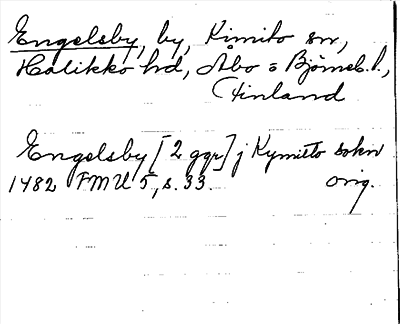 Engelsby, by, Kimito sn,
Halikko hd, Åbo o Björneb. l.,
Finland
Engelsby [2 ggr] j Kymitto sokn
1482 FMU 5, s. 33. orig.